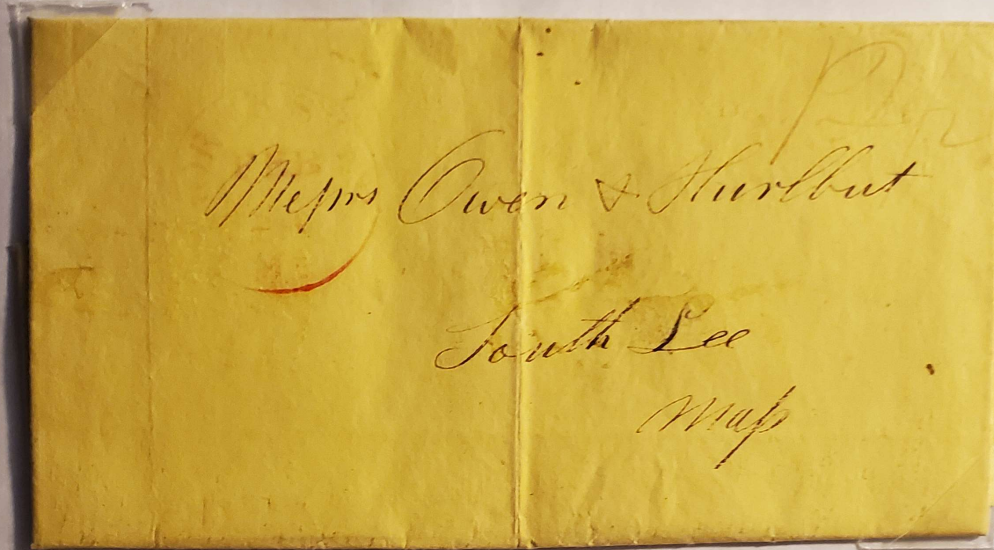 Messrs Owen & Hurlbut
South Lee
Mass